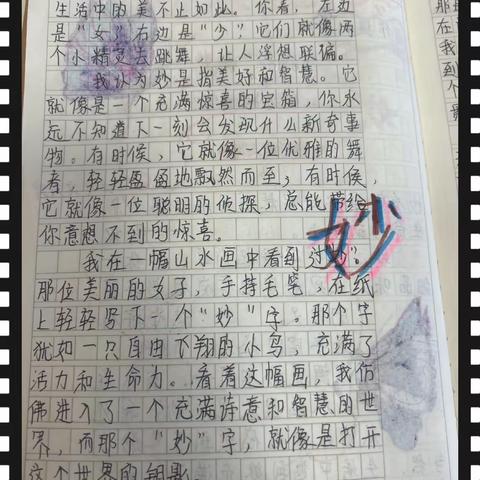 生活中的美不止如此。你看，左边
是“女”右边是“少”？它们就像两
个小精灵去跳舞，让人浮想联偏。
我认为妙是指美好和智慧。它
就像是一个充满惊喜的宝箱，你永
远不知道下一刻会发现什么新奇事
物。有时候，它就像一位优雅的舞
者，轻轻盈盈地飘然而至；有时候，
它就像一位聪明的侦探，总能带给
你意想不到的惊喜。
我在一幅山水画中看到过“妙”。
那位美丽的女子，手持毛笔，在纸
上轻轻写下一个“妙”字。那个字
犹如一只自由飞翔的小鸟，充满了
活力和生命力。看着这幅画，我仿
佛进入了一个充满诗意和智慧的世
界，而那个“妙”字，就像是打开
这个世界的钥匙。
妙
那
在
我
到
个